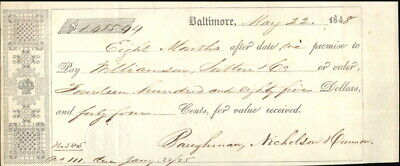 $1485.44 Baltimore, May 22. 1848
Eight Months after date, we promise to
Pay Williamson, Sutton & Co or order,
Fourteen Hundred and eighty five Dollars,
and forty four Cents, for value received.
No 345 Baughman, Nicholson &
due Jany